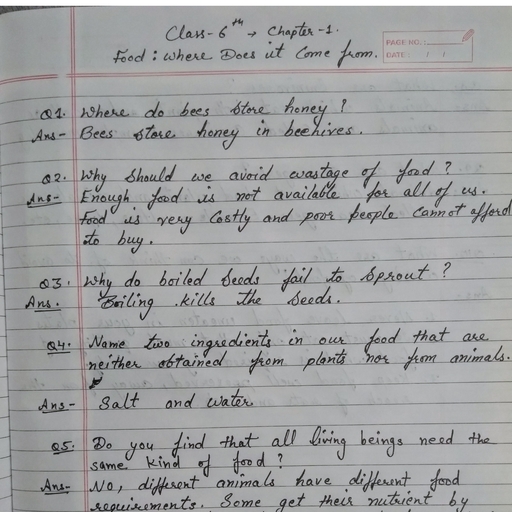 Class-6th → Chapter-1.
Food: Where Does it Come from.
PAGE NO.:
DATE: / /
Q1. Where do bees store honey?
Ans- Bees store honey in beehives.
Q2. Why should we avoid wastage of food?
Ans- Enough food is not available for all of us.
Food is very Costly and poor people Cannot afford
to buy.
Q3. Why do boiled seeds fail to Sprout?
Ans. Boiling kills the seeds.
Q4. Name two ingredients in our food that are
neither obtained from plants nor from animals.
Ans- Salt and water
Q5. Do you find that all living beings need the
same kind of food?
Ans- No, different animals have different food
requirements. Some get their nutrient by